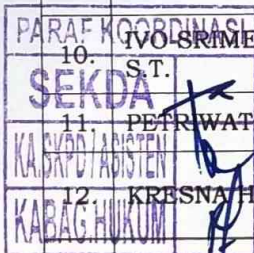 PARAF KOORDINASI
10. IVO SRIME
S.T.
SEKDA
11. PETRIWAT
KA.SKPD / ASISTEN
12. KRESNA H
KABAG.HUKUM